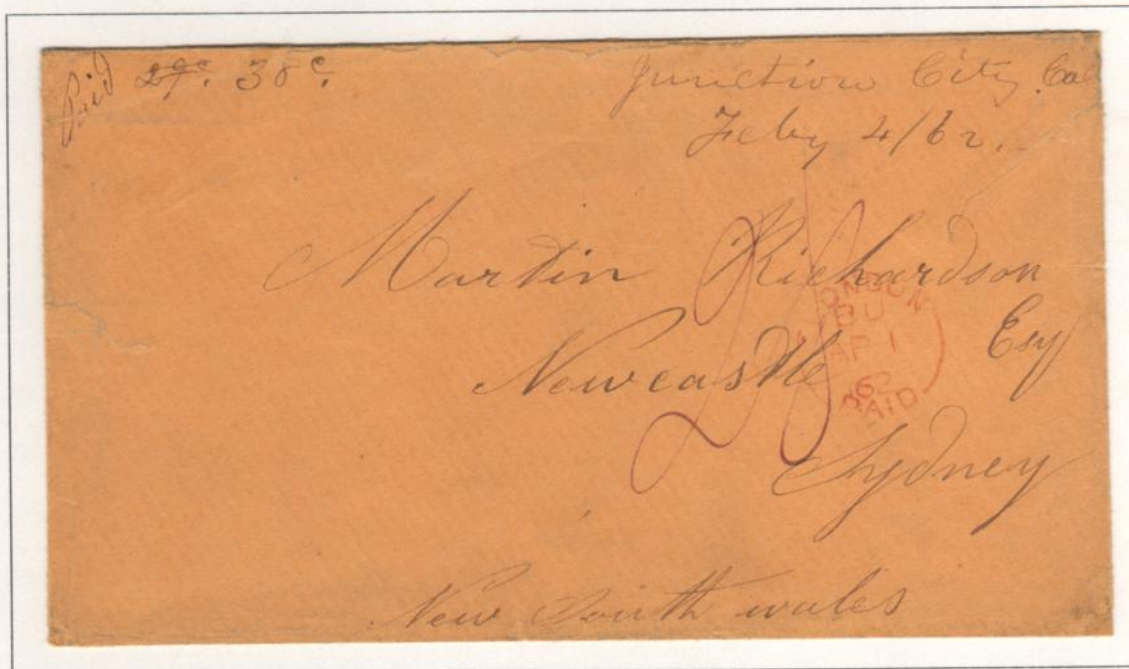 Paid 29c. 38c.
Junction City. Cal
Feby 4/62.
Martin Richardson
Esq
Newcastle
Sydney
New South wales
LONDON
BU
AP 1
62
PAID